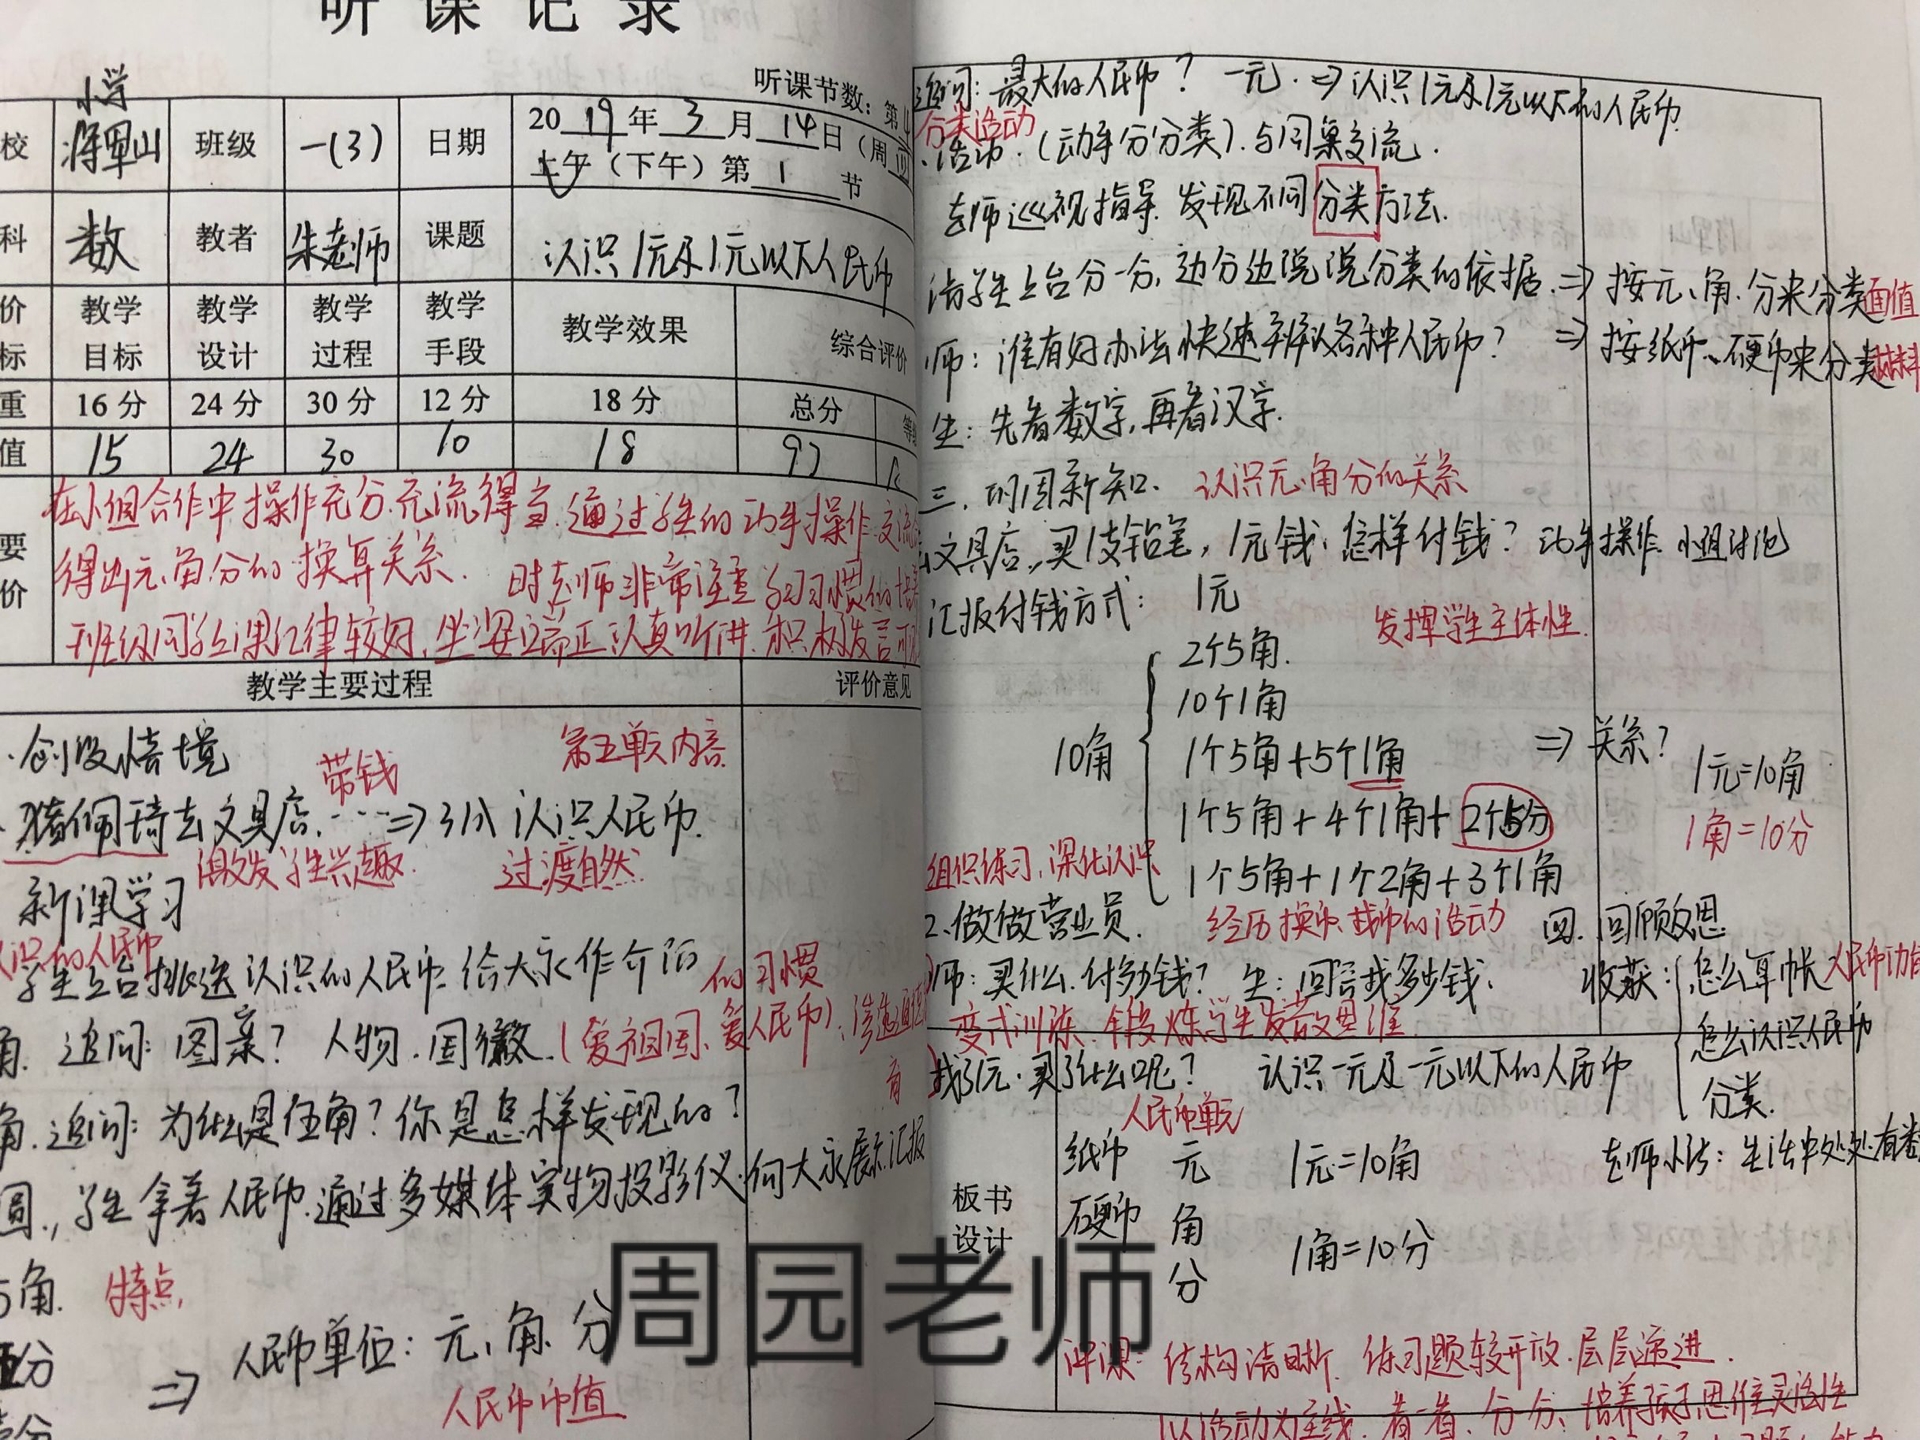 听课记录
听课节数：第4
小学
校 蒋军山 班级 一(3) 日期 2019年3月14日（周四
上午（下午）第1节
科 数 教者 朱老师 课题 认识1元及1元以下人民币
价 教学 教学 教学 教学 教学效果 综合评价
标 目标 设计 过程 手段
重 16分 24分 30分 12分 18分 总分
值 15 24 30 10 18 97
要 在小组合作中操作充分.交流得当.通过学生的动手操作.交流
价 得出元.角.分的换算关系. 时老师非常注重学习习惯的培养
班级同学课纪律较好,坐姿端正,认真听讲.积极发言
教学主要过程 评价意见
创设情境
带钱 第五单元内容
猪佩琦去文具店.……⇒引入认识人民币.
激发学生兴趣. 过渡自然.
新课学习
认识的人民币
学生上台挑选认识的人民币.给大家作介绍 的习惯
角.追问:图案? 人物.国徽.(爱祖国、爱人民币)
育
角.追问:为什么是伍角?你是怎样发现的?
圆.,学生拿着人民币.通过多媒体实物投影仪.向大家展示汇报
5角. 特点,
伍分
⇒ 人民币单位:元、角、分
人民币币值
追问:最大的人民币? 一元.⇒认识1元及1元以下的人民币.
分类活动
活动.(动手分分类).与同桌交流.
老师巡视指导.发现不同分类方法.
请学生上台分一分,边分边说说分类的依据.⇒按元、角.分来分类 面值
师:谁有好办法快速辨认各种人民币? ⇒按纸币、硬币来分类 材料
生:先看数字,再看汉字.
三.巩固新知. 认识元、角分的关系
文具店,买1支铅笔,1元钱,怎样付钱?动手操作.小组讨论
汇报付钱方式: 1元
发挥学生主体性.
2个5角.
10个1角
10角 1个5角+5个1角 ⇒ 关系? 1元=10角
1个5角+4个1角+2个5分 1角=10分
1个5角+1个2角+3个1角
组织练习,深化认识
2.做做营业员. 经历换币.找币的活动 四.回顾反思
师:买什么.付多少钱? 生:回答找多少钱. 收获:怎么算帐 人民币功能
变式训练.锻炼学生发散思维 怎么认识人民币
找了1元.买了什么呢? 认识一元及一元以下的人民币 分类.
人民币单元
纸币 元 1元=10角 老师小结:生活中处处有数
板书 硬币 角
设计 分 1角=10分
周园老师
评课:结构清晰.练习题较开放.层层递进.
以活动为主线.看一看、分一分、培养孩子思维灵活性